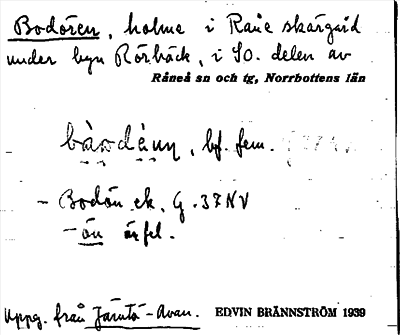 Bodören, holme i Råne skärgård
under byn Rörbäck, i SO. delen av
Råneå sn och tg, Norrbottens län
bå̀wdå̀nn, bf. fem.
- Bodön ek. G. 37 NV
- ön är fel.
Uppg. från Jämtö-Avan. EDVIN BRÄNNSTRÖM 1939